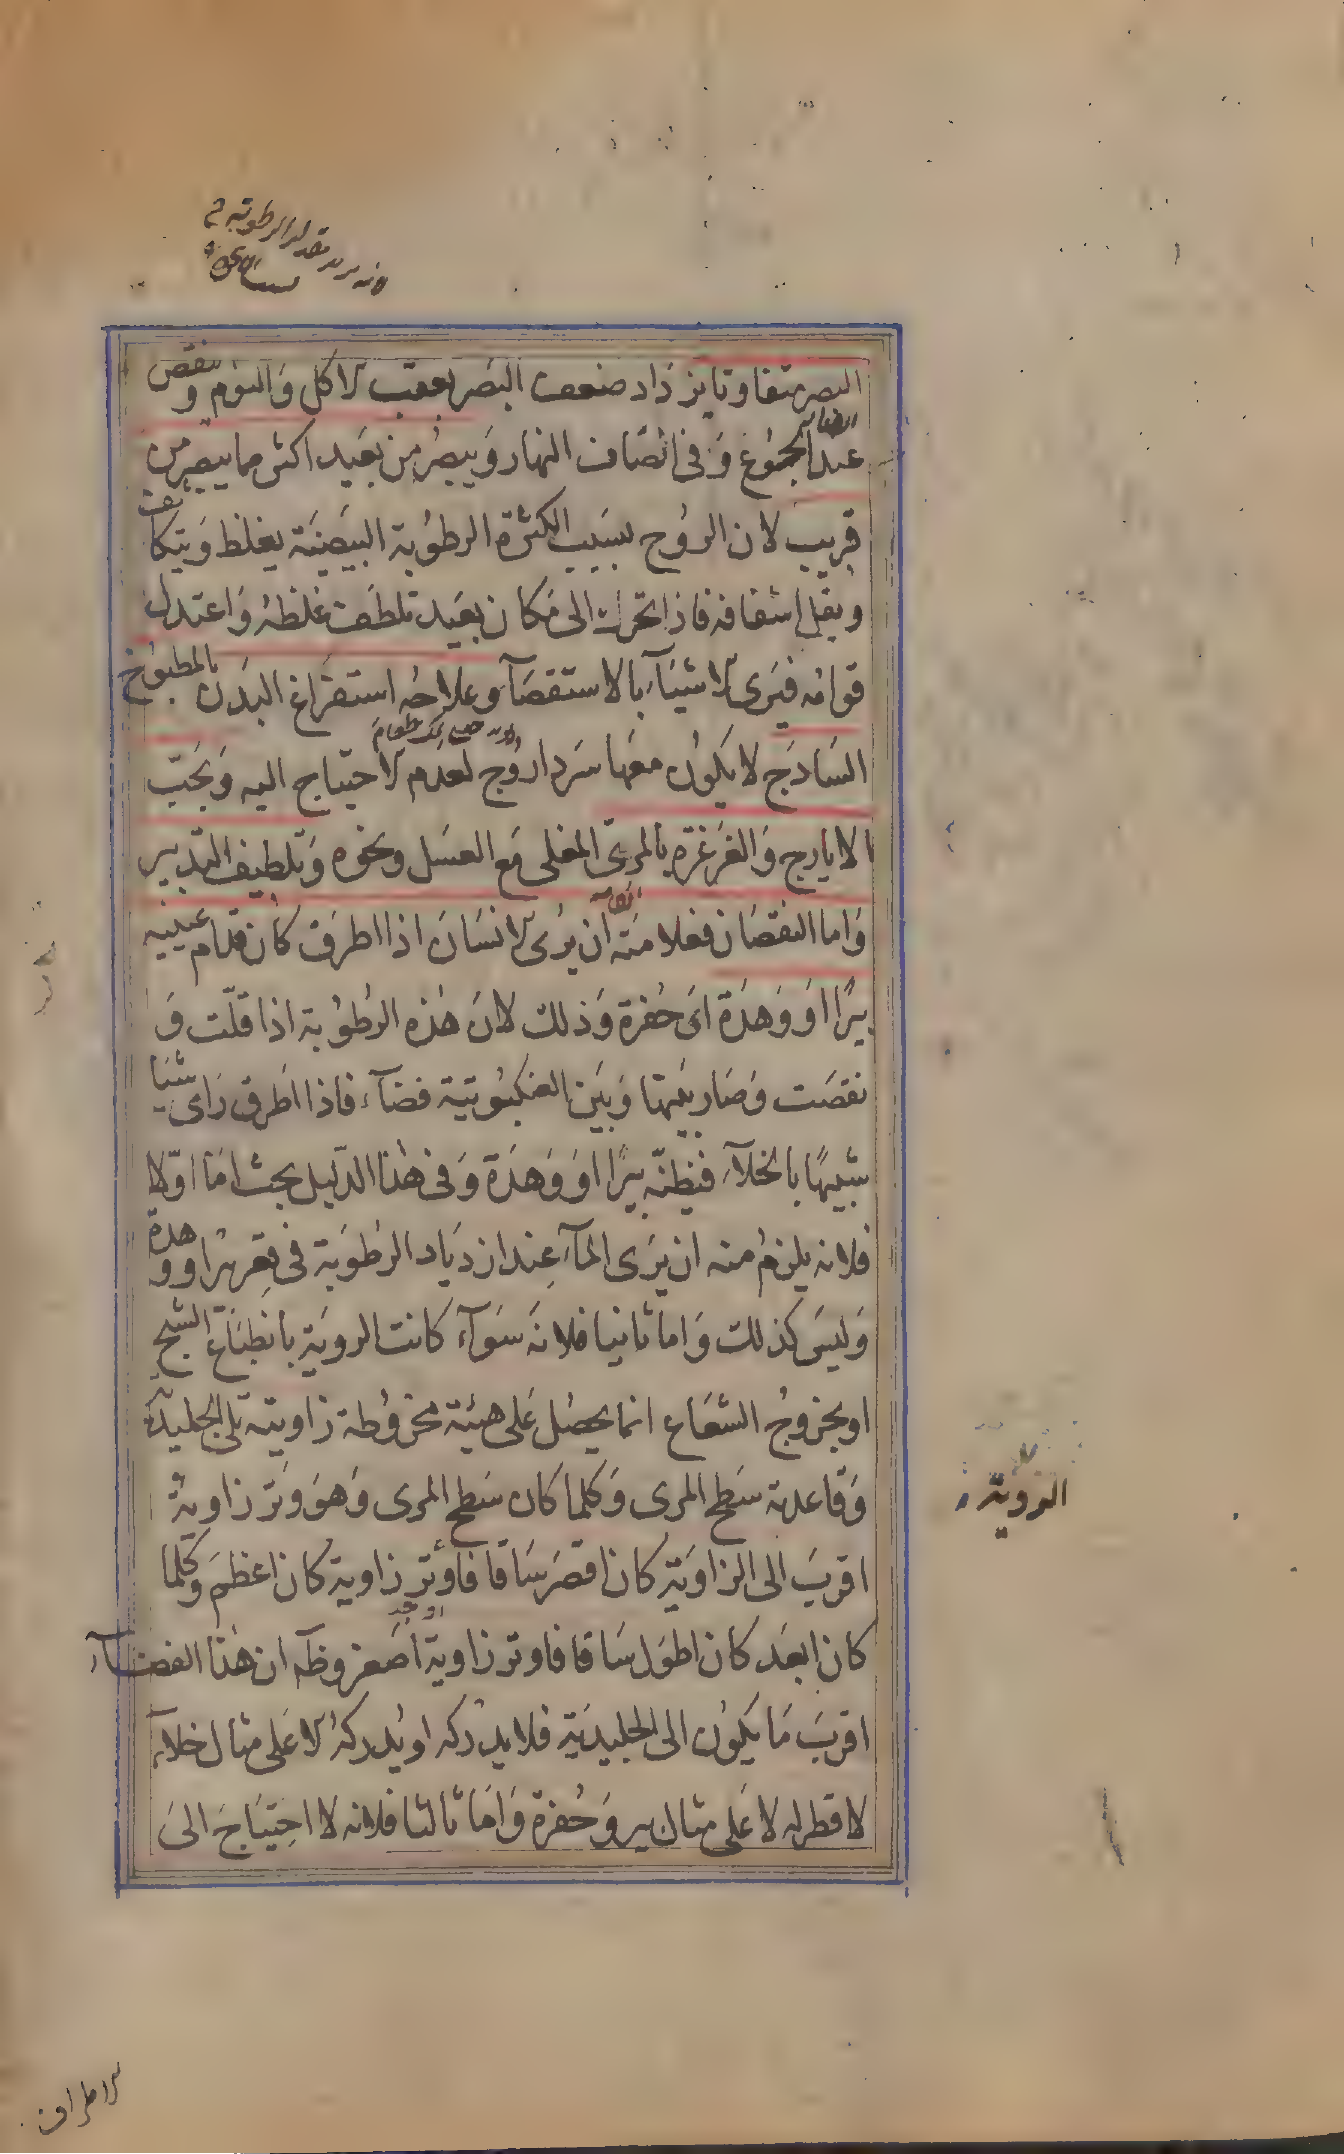 البصر متفاوتا يزداد ضعف البصر بعقب الاكل والنوم وينقص
عند الجوع وفى انصاف النهار ويبصر من بعيد اكثر مما يبصر من
قريب لان الروح بسبب الكثرة الرطوبة البيضية يغلظ ويتكاثف
ويقل اشفافه فاذا تحرك الى مكان بعيد تلطف غلظه واعتدل
قوامه فيرى الاشياء بالاستقصاء وعلاجه استفراغ البدن بالمطبوخ
الساذج لا يكون معها سردا روج لعدم الاحتياج اليه وبحب
الايارج والغرغره بالمرى المغلى مع العسل ونحوه وتلطيف التدبير
واما النقصان فعلامته ان يرى الانسان اذا اطرق كان قدام عينيه
بيرا او وهدة اى حفرة وذلك لان هذه الرطوبة اذا قلت و
نقصت وصار بينها وبين العنكبوتية فضآء فاذا اطرق راى شيا
شبيها بالخلآء فيظنه بيرا او وهدة وفى هذا الدليل بحث اما اولا
فلانه يلزم منه ان يرى المآء عند ازدياد الرطوبة فى قعر بيرا ووهدة
وليس كذلك واما ثانيا فلانه سوآء كانت الروية بانطباع الشبح
او بخروج الشعاع انما يحصل على هيئة مخروطة زاويته تلى الجليدية
وقاعدته سطح المرى وكلما كان سطح المرى وهو وتر زاوية
اقرب الى الزاوية كان اقصر ساقا فاوتر زاوية كان اعظم وكلما
كان ابعد كان اطول ساقا فاوتر زاوية اصغر وظه ان هذا الفضآء
اقرب ما يكون الى الجليدية فلا يدركه او يدركه لا على مثال خلآء
لا قطر له لا على مثال بير وحفرة واما ثالثا فلانه لا احتياج الى
الروية
الاطراف